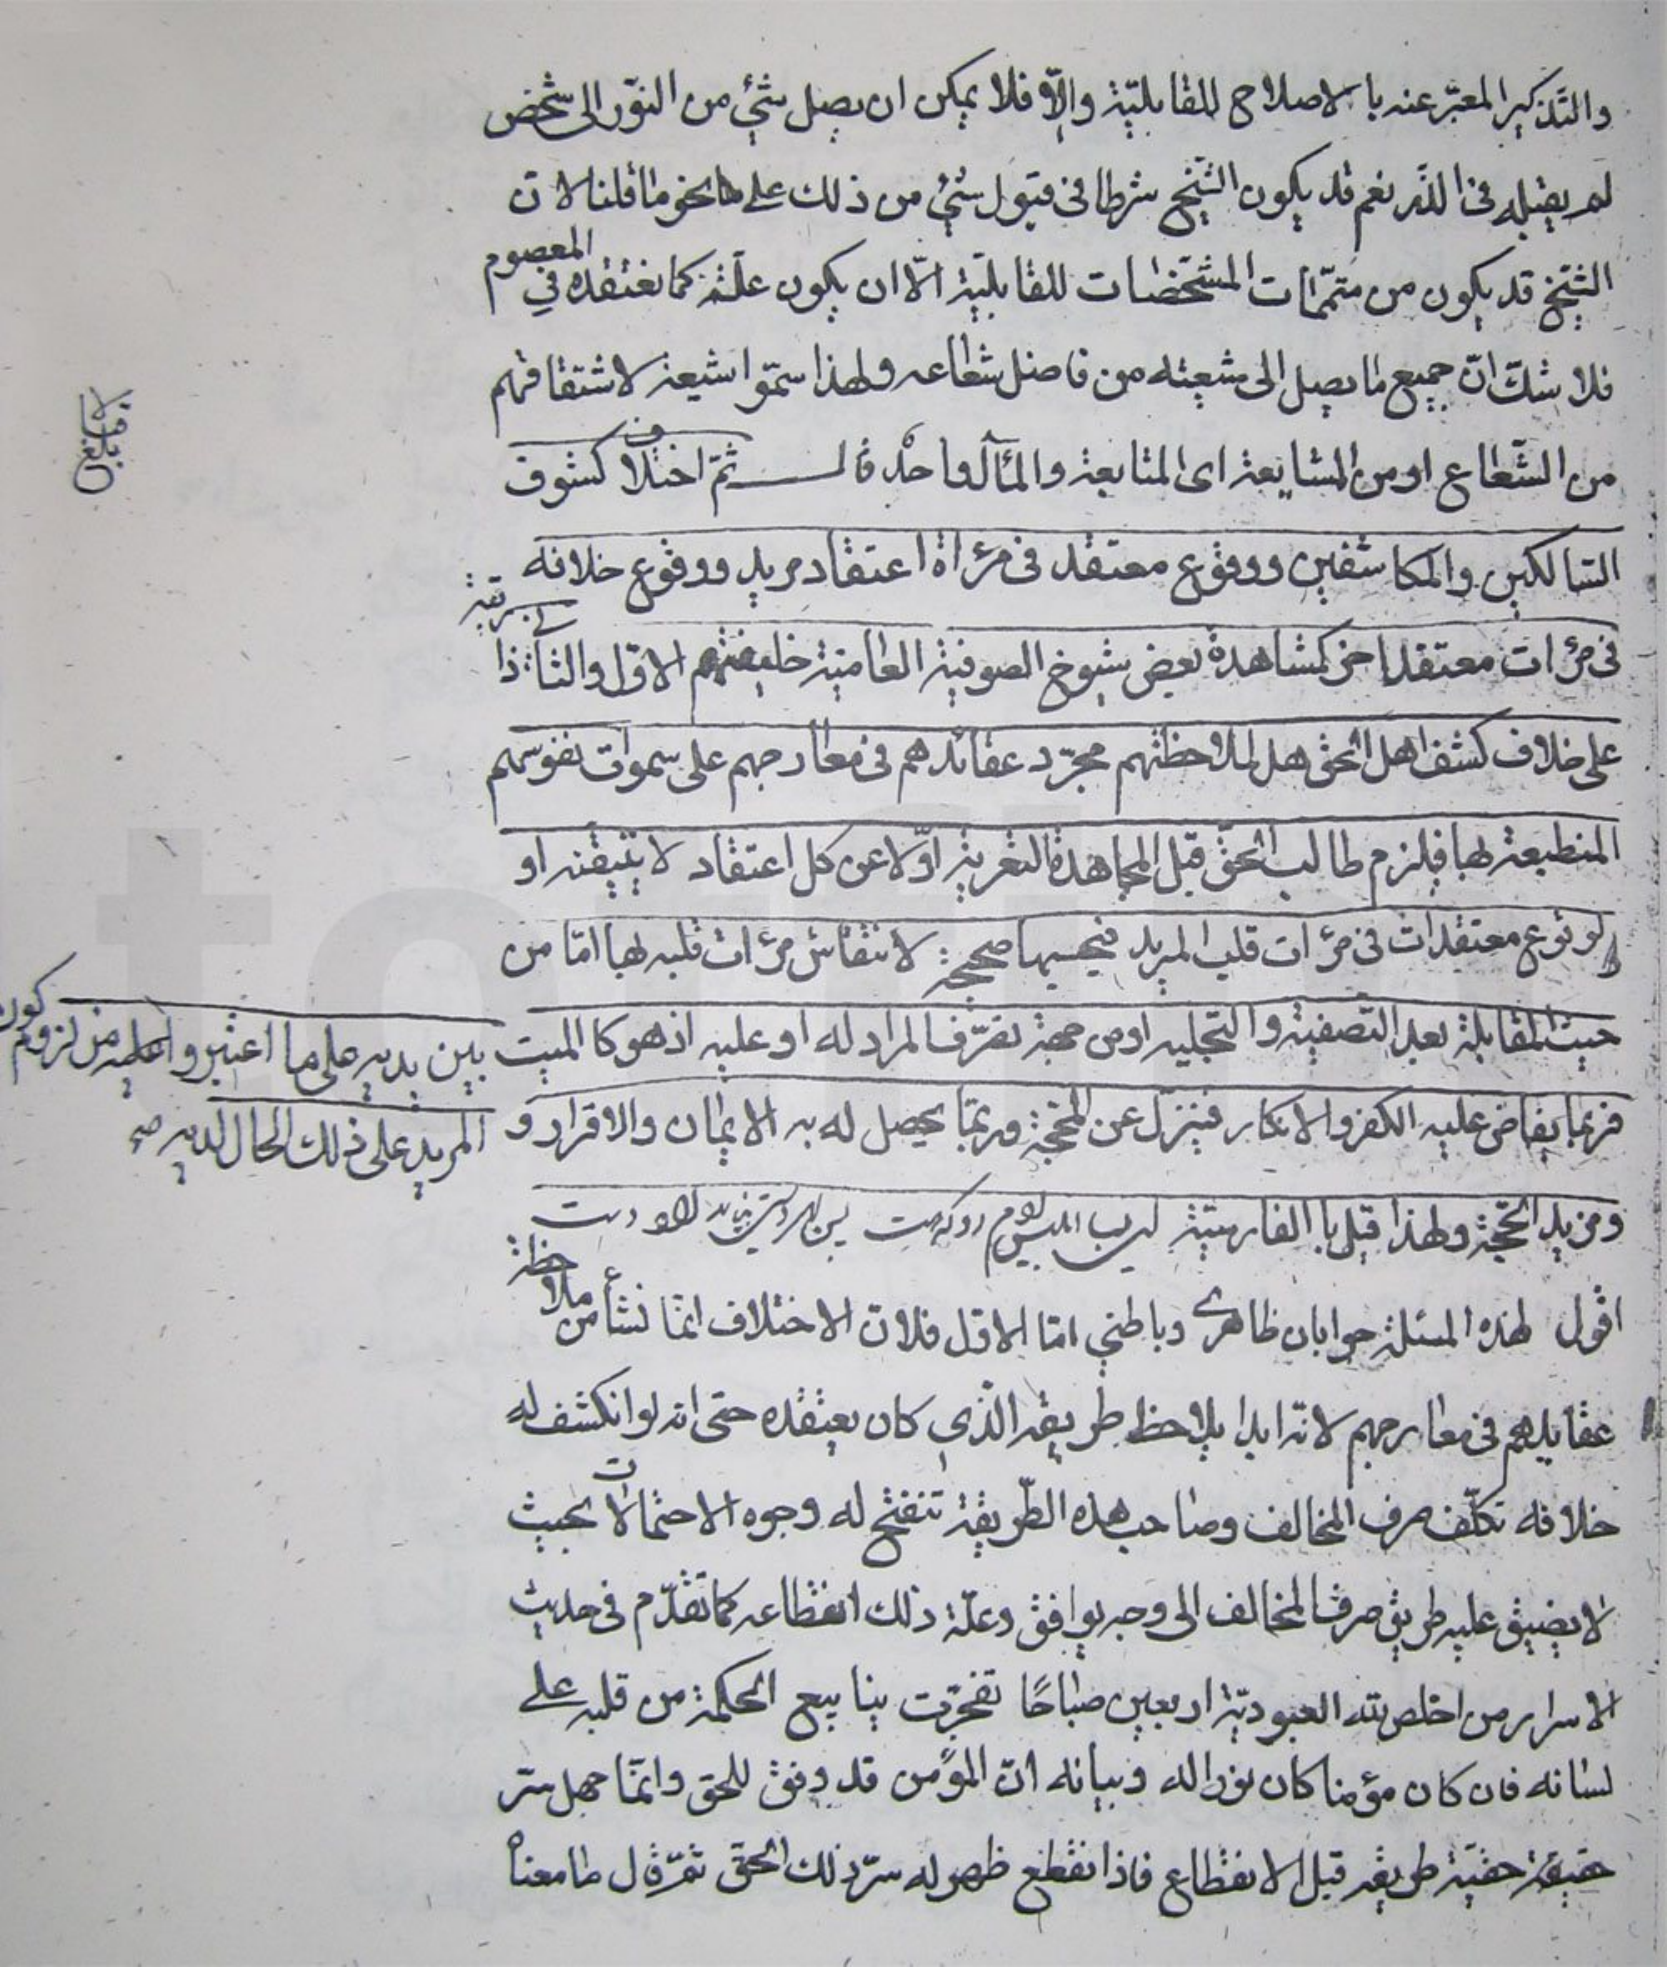 والتذكير المعبّر عنه بالاصلاح للقابليّة والّا فلا يمكن ان يصل شئ من النور الى شخص
لم يقبله فى الذر نعم قد يكون الشيخ شرطا فى قبول شئ من ذلك على نحو ما قلنا لان
الشيخ قد يكون من متمّمات المشخّصات للقابليّة الّا ان يكون علّة كما نعتقده في المعصوم
فلا شكّ انّ جميع ما يصل الى شيعته من فاضل شعاعه ولهذا سمّوا شيعة لاشتقاقهم
من الشعاع او من المشايعة اى المتابعة والمآل واحد قال ثمّ اختلاف كشوف
السالكين والمكاشفين ووقوع معتقد فى مرٔاة اعتقاد مريد ووقوع خلافه
فى مرٔات معتقد اخر كمشاهدة بعض شيوخ الصوفية العامية خليفتهم الاول والثانى ذا مرتبة
على خلاف كشف اهل الحق هل لملاحظتهم مجرّد عقائدهم فى معارجهم على سموات نفوسهم
المنطبعة لها فيلزم طالب الحقّ قبل المجاهدة التعرية اوّلا عن كل اعتقاد لا يتيقنه او
لوقوع معتقدات فى مرٔات قلب المريد فيحسبها صحيحة لانتقاش مرٔات قلبه لها امّا من
حيث المقابلة بعد التصفية والتجليه او من جهة تصرّف المراد له او عليه اذ هو كالميت بين يديه على ما اعتبروا عليه من لزوم كون
المريد على ذلك الحال لديه صح
فربما يفاض عليه الكفر والانكار فيتنزّل عن المحجة وربّما يحصل له به الايمان والاقرار و
ومزيد الحجّية ولهذا قيل با الفارسيّة
اقول لهذه المسئلة جوابان ظاهرى وباطني امّا الاول فلان الاختلاف انما نشأ من ملاحظة
عقايدهم فى معارجهم لانه ابدا يلاحظ طريقه الّذي كان يعتقده حتى انه لو انكشف له
خلافه تكلّف صرف المخالف وصاحب هذه الطّريقة تنفتح له وجوه الاحتمالات بحيث
لا يضيق عليه طريق صرف المخالف الى وجه يوافق وعلّة ذلك انقطاعه كما تقدّم فى حديث
الاسرار من اخلص لله العبوديّة اربعين صباحًا تفجّرت ينابيع الحكمة من قلبه على
لسانه فان كان مؤمنا كان نورا له وبيانه انّ المؤمن قد وفق للحق وانّما جهل سرّ
حقيقة حقيّة طريقه قبل الانقطاع فاذا انقطع ظهر له سرّ ذلك الحقّ ثمّ قال ما معناه